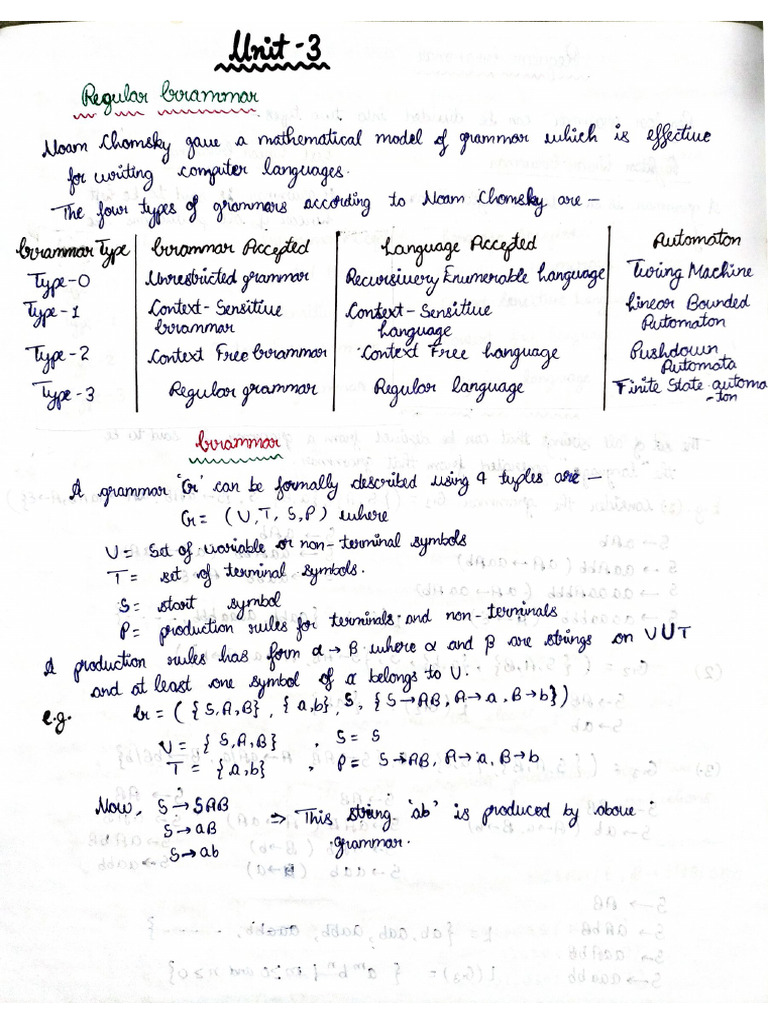 Unit-3
Regular Grammar
Noam Chomsky gave a mathematical model of grammar which is effective
for writing computer languages.
The four types of grammars according to Noam Chomsky are -
Grammar Type | Grammar Accepted | Language Accepted | Automaton
Type-0 | Unrestricted grammar | Recursivery Enumerable Language | Turing Machine
Type-1 | Context-Sensitive Grammar | Context-Sensitive Language | Linear Bounded Automaton
Type-2 | Context Free Grammar | Context Free Language | Pushdown Automata
Type-3 | Regular grammar | Regular language | Finite State automa-ton
Grammar
A grammar 'G' can be formally described using 4 tuples are -
G = (V, T, S, P) where
V = Set of variable or non-terminal symbols
T = set of terminal symbols.
S = start symbol
P = production rules for terminals and non-terminals
A production rules has form α → β where α and β are strings on V U T
and at least one symbol of α belongs to V.
e.g. G = ({S, A, B}, {a, b}, S, {S → AB, A → a, B → b})
V = {S, A, B} , S = S
T = {a, b} , P = S → AB, A → a, B → b
Now, S → SAB
S → aB ⇒ This string 'ab' is produced by above
S → ab grammar.